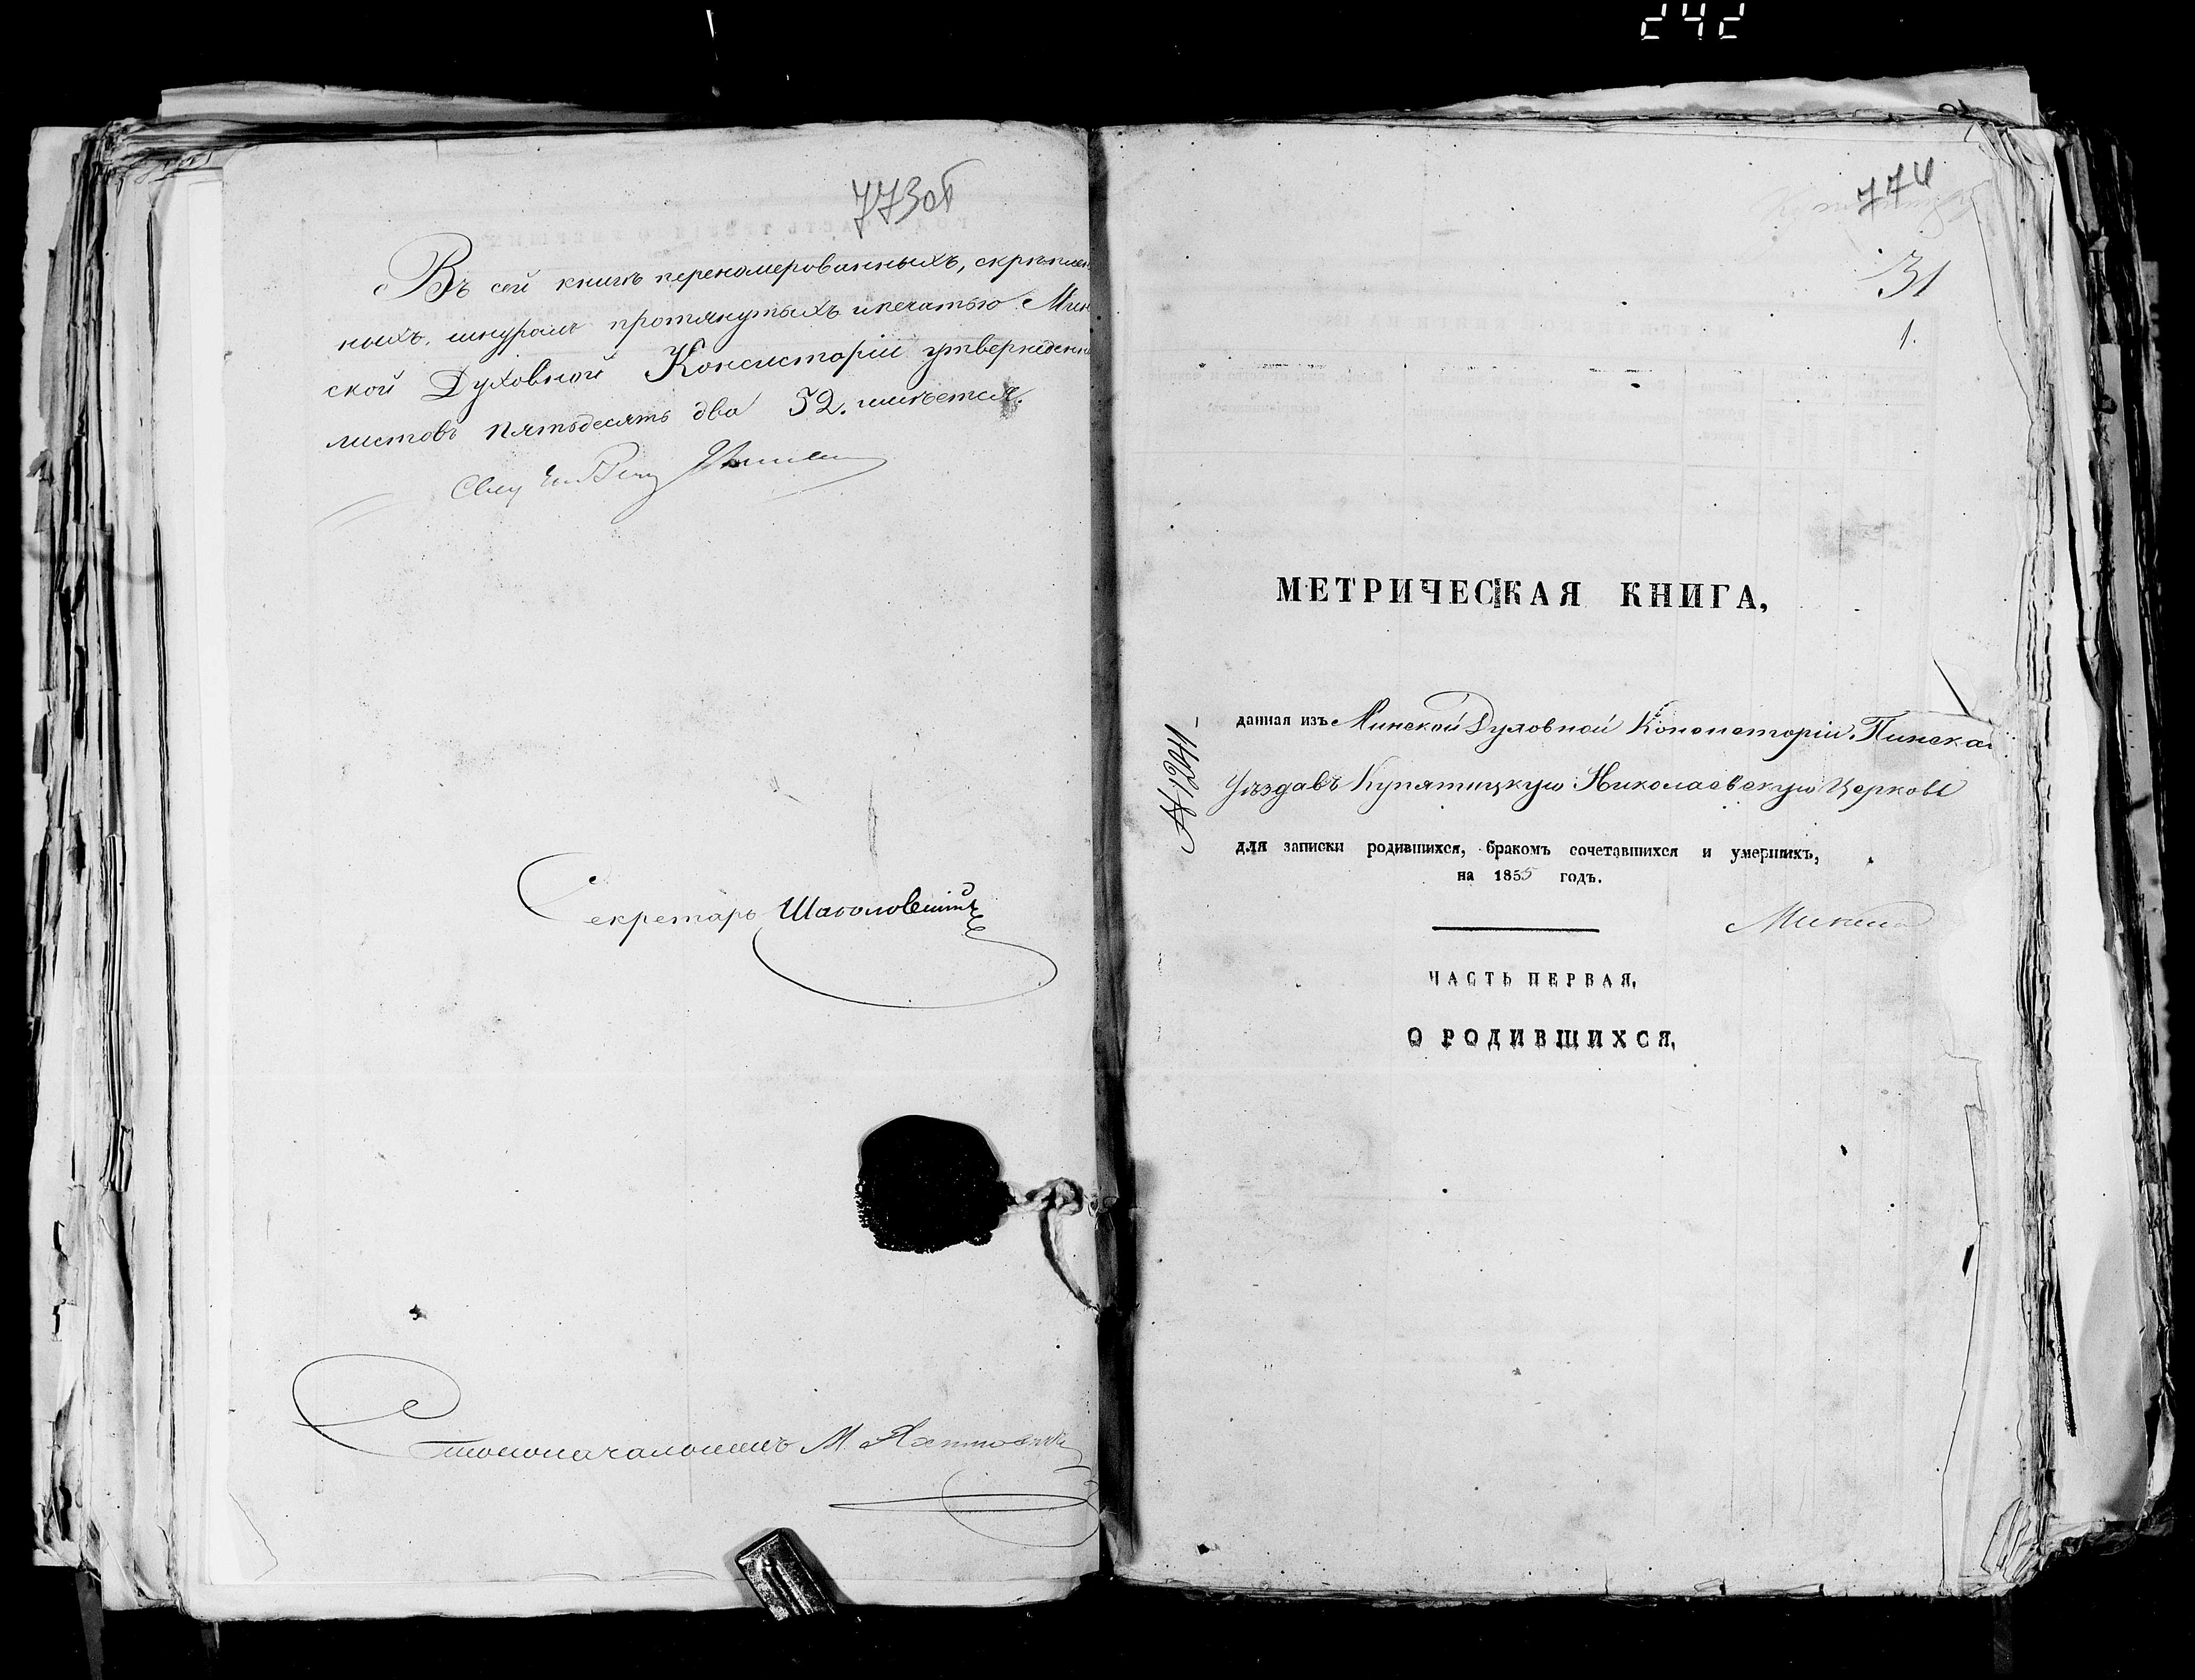 242
773об
Въ сей книгѣ перенумерованныхъ, скрѣплен
ныхъ, шнуромъ протянутыхъ и печатью Мин
ской Духовной Консисторіи утвержденн
листовъ пятьдесятъ два 52. имѣется.
Секретарь
Столоначальникъ М.
774
31
1.
МЕТРИЧЕСКАЯ КНИГА,
№ 1241
данная изъ Минской Духовной Консисторіи Пинска
Уѣзда въ Купятицкую Николаевскую Церковь
для записки родившихся, бракомъ сочетавшихся и умершихъ,
на 1855 годъ.
ЧАСТЬ ПЕРВАЯ,
О РОДИВШИХСЯ,